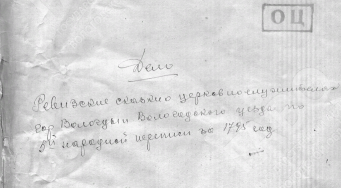 ОЦ
Дело
Ревизские сказки церковнослужителей
гор. Вологды и Вологодского уезда по
5й народной переписи за 1795 год